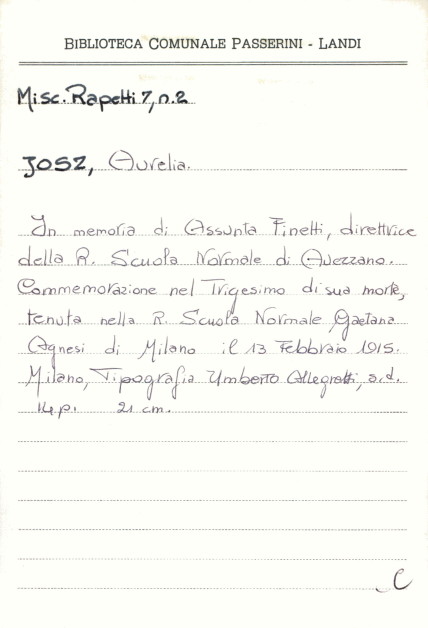 BIBLIOTECA COMUNALE PASSERINI - LANDI
Misc. Rapetti 7, n. 2
JOSZ, Aurelia.
In memoria di Assunta Finetti, direttrice
della R. Scuola Normale di Avezzano.
Commemorazione nel Trigesimo di sua morte,
tenuta nella R. Scuola Normale Gaetana
Agnesi di Milano il 13 Febbraio 1915.
Milano, Tipografia Umberto Allegretti, s.d.
14 p. 21 cm.
C